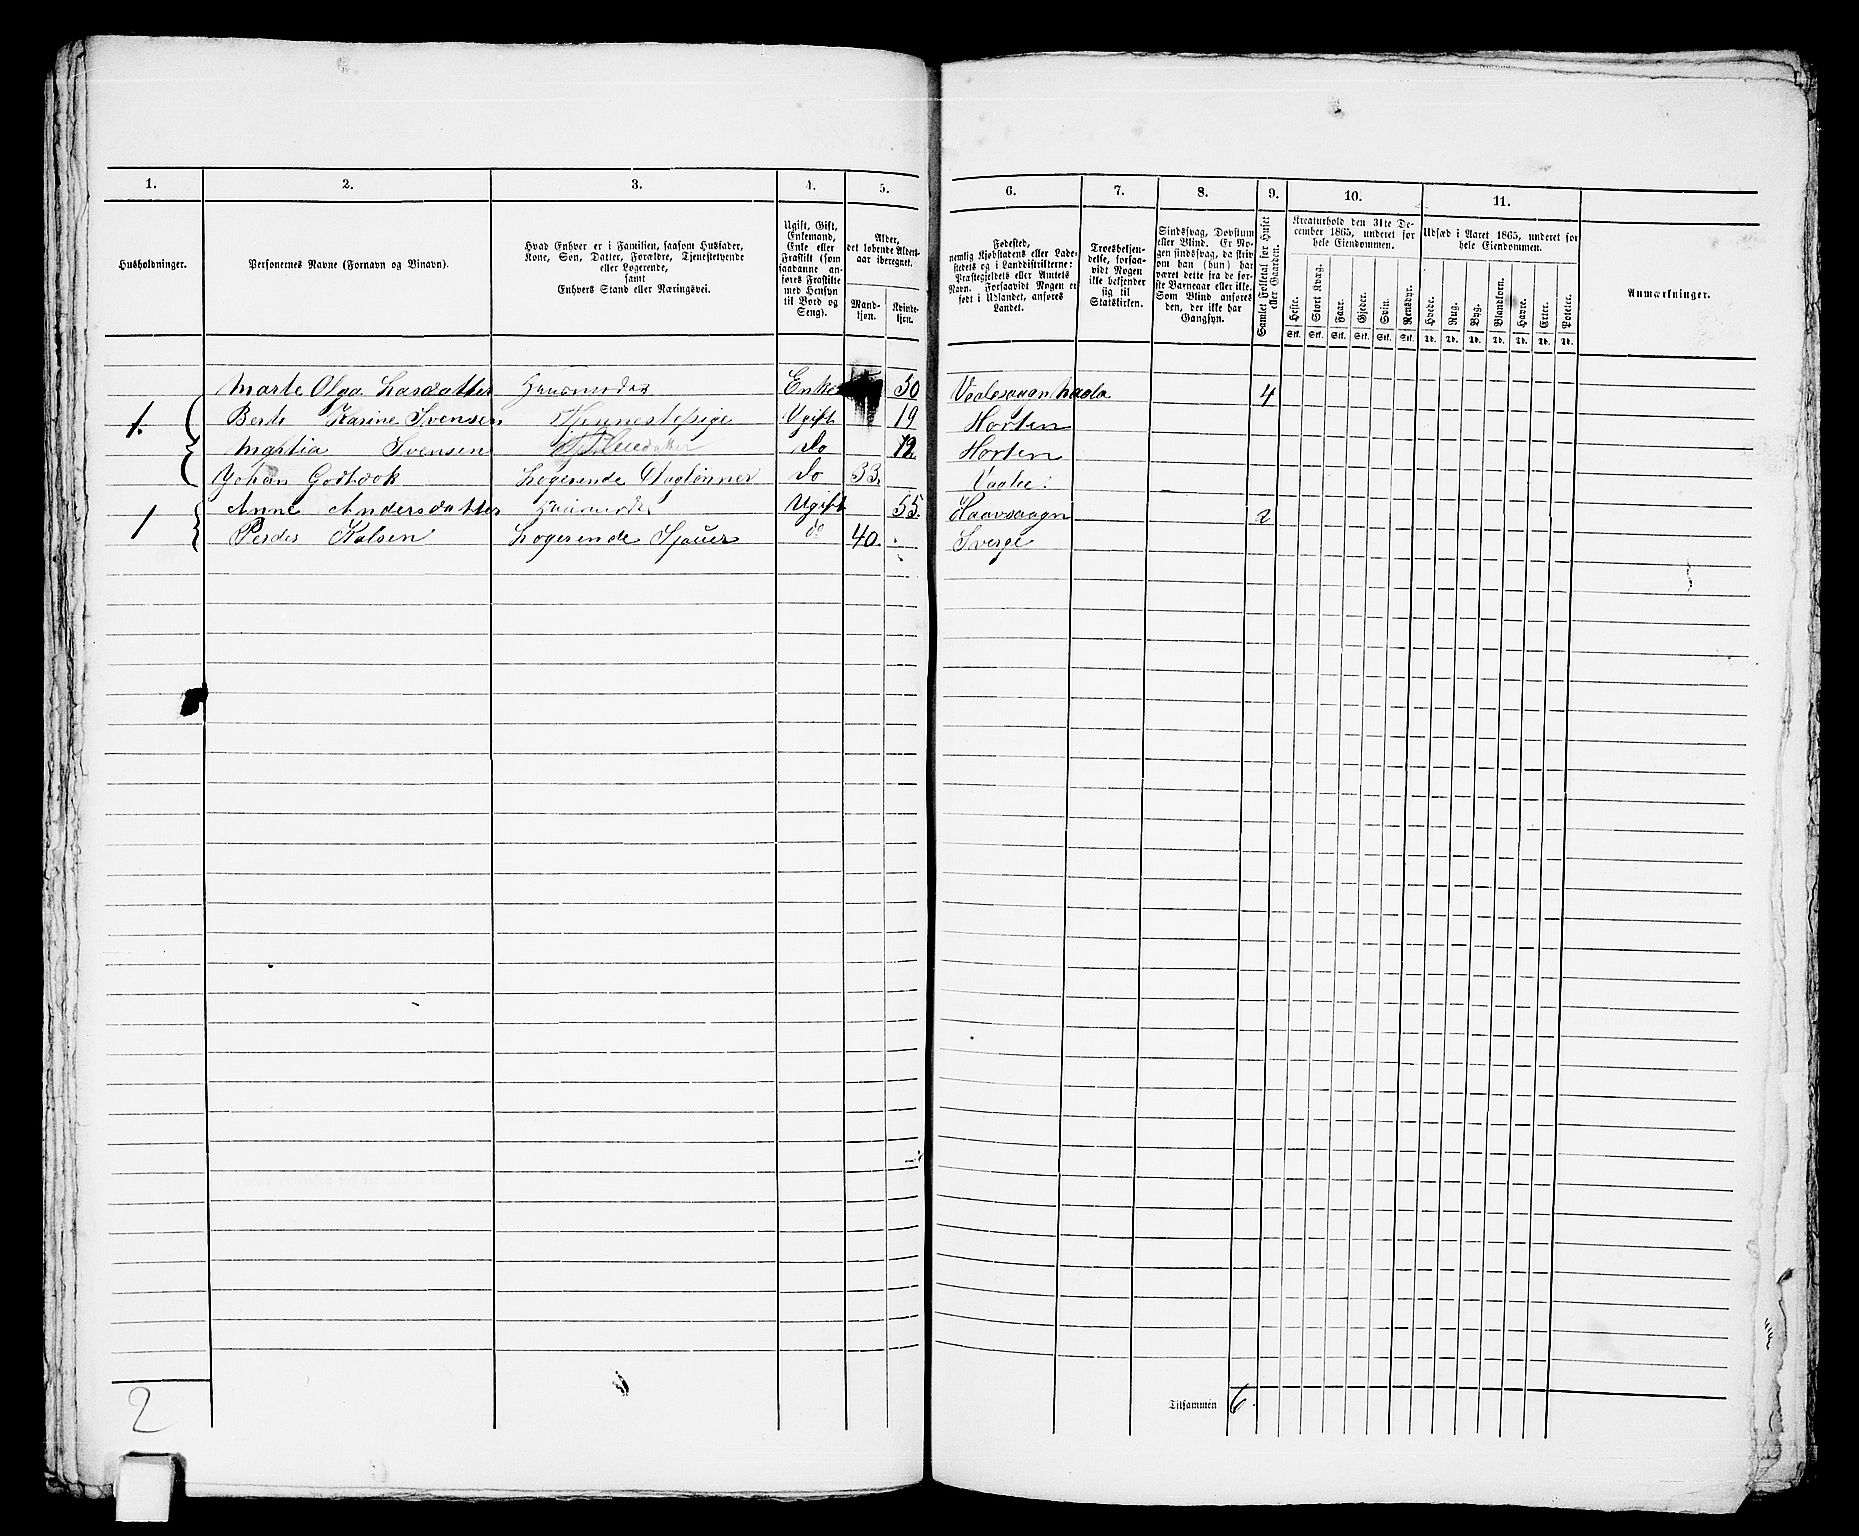 1. 2. 3. 4. 5. 6. 7. 8. 9. 10. 11.
Husholdninger.
Personernes Navne (Fornavn og Binavn).
Hvad Enhver er i Familien, saasom Husfader,
Kone, Søn, Datter, Forældre, Tjenestetyende
eller Logerende,
samt
Enhvers Stand eller Næringsvei.
Ugift, Gift,
Enkemand,
Enke eller
Fraskilt (som
saadanne an-
føres Fraskilte
med Hensyn
til Bord og
Seng).
Alder,
det løbende Alders-
aar iberegnet.
Mand-
kjøn.
Kvinde-
kjøn.
Fødested,
nemlig Kjøbstadens eller Lade-
stedets og i Landdistrikterne:
Præstegjeldets eller Amtets
Navn. Forsaavidt Nogen er
født i Udlandet, anføres
Landet.
Troesbekjen-
delse, forsaa-
vidt Nogen
ikke bekjender
sig til
Statskirken.
Sindssvag, Døvstum
eller Blind. Er No-
gen sindssvag, da skriv
om han (hun) har
været dette fra de før-
ste Barneaar eller ikke.
Som Blind anføres
den, der ikke har
Gangsyn.
Samlet Folketal for Huset
eller Gaarden.
Kreaturhold den 31te De-
cember 1865, underet for
hele Eiendommen.
Heste. Stort Kvæg. Faar. Gjeder. Svin. Rensdyr.
Stk. Stk. Stk. Stk. Stk. Stk.
Udsæd i Aaret 1865, underet for
hele Eiendommen.
Hvede. Rug. Byg. Blandkorn. Havre. Erter. Poteter.
Td. Td. Td. Td. Td. Td. Td.
Anmærkninger.
Marte Olga Lasdatter Huusmoder Enke 50 4
1. Berte Karine Svensen Tjennestepige Ugift 19 Horten
Martia Svensen Do 12 Horten
Johan Godtdok Logerende Daglønner Do 33. Vaale.
1 Anne Andersdatter Huusmoder Ugift 55. Haavsaagn 2
Peides Kalsen Logerende Sjouer do 40. Sverge
2
Tilsammen 6.